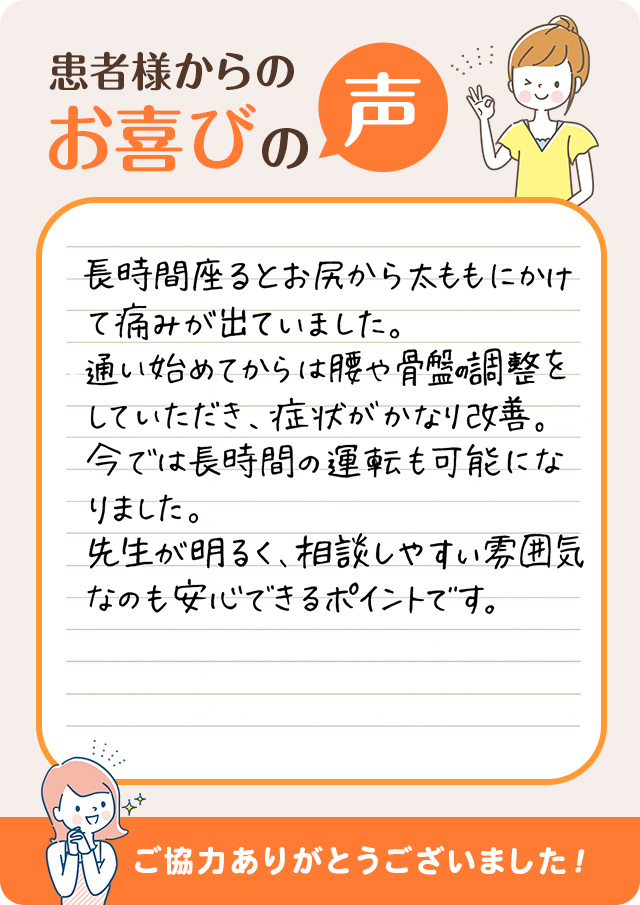 患者様からの
お喜びの声
長時間座るとお尻から太ももにかけ
て痛みが出ていました。
通い始めてからは腰や骨盤の調整を
していただき、症状がかなり改善。
今では長時間の運転も可能にな
りました。
先生が明るく、相談しやすい雰囲気
なのも安心できるポイントです。
ご協力ありがとうございました!